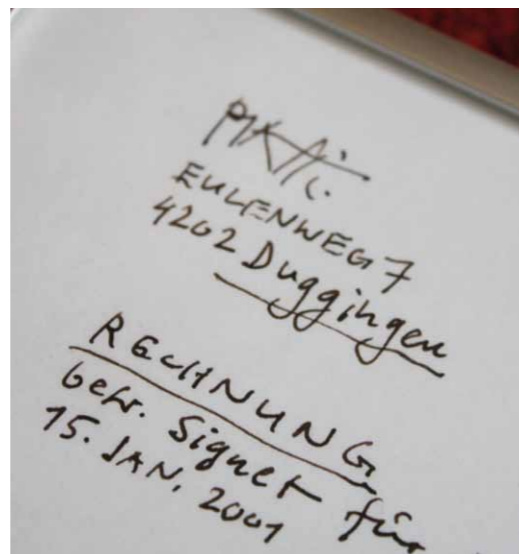 EULENWEG 7
4202 Duggingen
RECHNUNG
betr. Signet für
15. JAN. 2001